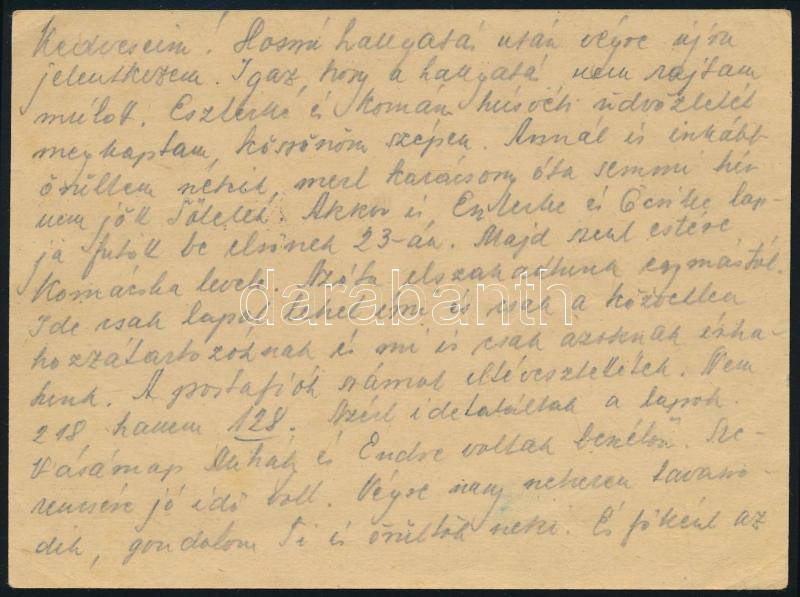 Kedveseim! Hosszú hallgatás után végre újra
jelentkezem. Igaz, hogy a hallgatás nem rajtam
múlott. Eszterke és Komám húsvéti üdvözletét
megkaptam, köszönöm szépen. Annál is inkább
örültem nékik, mert karácsony óta semmi hír
nem jött Tőletek. Akkor is Eszterke és Öcsike lap-
ja futott be elsőnek 23-án. Majd szent estére
Komácska levele. Azóta elszakadtunk egymástól.
Ide csak lapot lehet írni és csak a közvetlen
hozzátartozóknak és mi is csak azoknak írha-
tunk. A postafiók számot eltévesztettétek. Nem
218 hanem 128. Azért idetaláltak a lapok.
Vásárnap Mihály és Endre voltak bezélőn. Sze-
rencsére jó idő volt. Végre nagy nehezen tavaszo-
dik, gondolom Ti is örültök neki. És főként az
darabanth